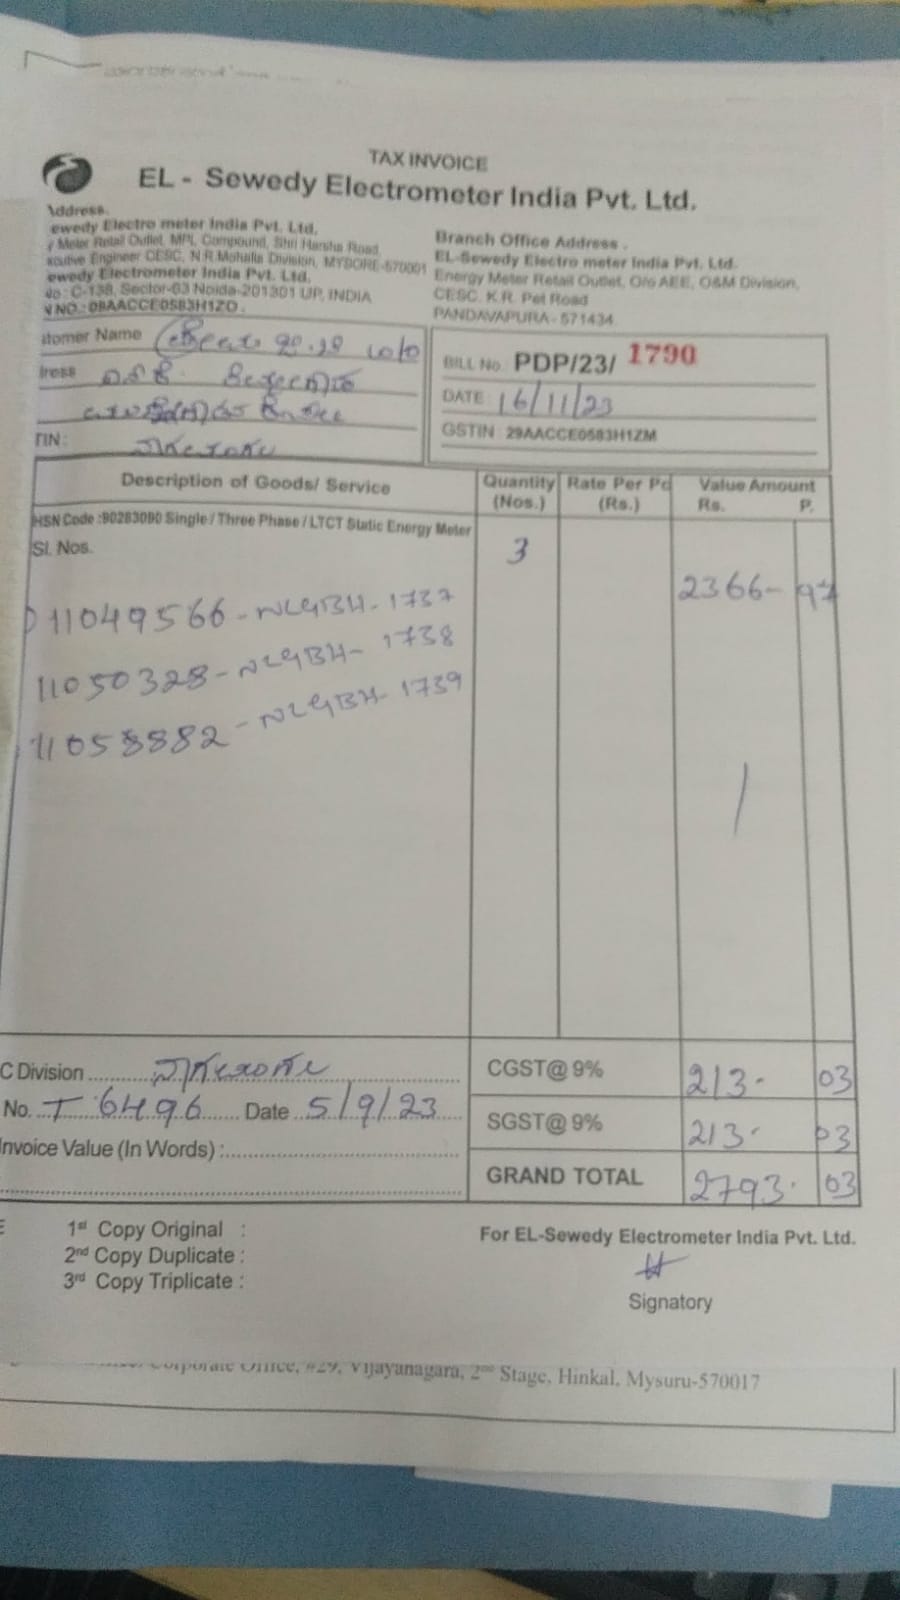 TAX INVOICE
EL - Sewedy Electrometer India Pvt. Ltd.
Address.
ewedy Electro meter India Pvt. Ltd.
Meter Retail Outlet, MPL Compound, Shri Harsha Road,
xcutive Engineer CESC, N.R.Mohalla Division, MYSORE-570001
ewedy Electrometer India Pvt. Ltd.
No : C-138, Sector-63 Noida-201301 UP, INDIA
N NO. : 09AACCE0583H1ZO.
Branch Office Address .
EL-Sewedy Electro meter India Pvt. Ltd.
Energy Meter Retail Outlet, O/o AEE, O&M Division,
CESC. K.R. Pet Road
PANDAVAPURA - 571434.
stomer Name
dress
TIN :
BILL No. PDP/23/ 1790
DATE : 16/11/23
GSTIN : 29AACCE0583H1ZM
Description of Goods/ Service Quantity (Nos.) Rate Per Pc (Rs.) Value Amount Rs. P.
HSN Code :90283090 Single / Three Phase / LTCT Static Energy Meter
Sl. Nos.
3
2366- 97
11049566 - NLGBH - 1737
11050328 - NLGBH - 1738
11058882 - NLGBH - 1739
C Division
No. T 6496 Date 5/9/23
Invoice Value (In Words) :
CGST@ 9% 213- 03
SGST@ 9% 213- 03
GRAND TOTAL 2793. 03
1st Copy Original :
2nd Copy Duplicate :
3rd Copy Triplicate :
For EL-Sewedy Electrometer India Pvt. Ltd.
Signatory
Corporate Office, #29, Vijayanagara, 2nd Stage, Hinkal, Mysuru-570017